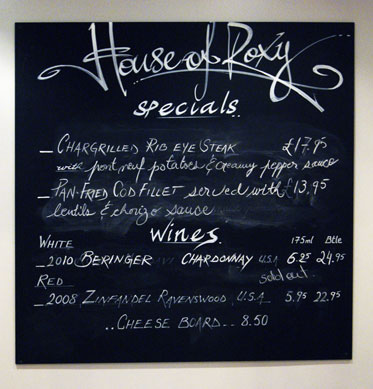 House of Roxy
Specials
_ CHARGRILLED RIB EYE STEAK £17.95
with pont neuf potatoes & creamy pepper sauce
_ PAN-FRIED COD FILLET served with £13.95
lentils & chorizo sauce
Wines
WHITE 175ml Btle
_ 2010 BERINGER CHARDONNAY U.S.A 6.25 24.95
RED sold out
_ 2008 ZINFANDEL RAVENSWOOD, U.S.A 5.95 22.95
..CHEESE BOARD.. 8.50